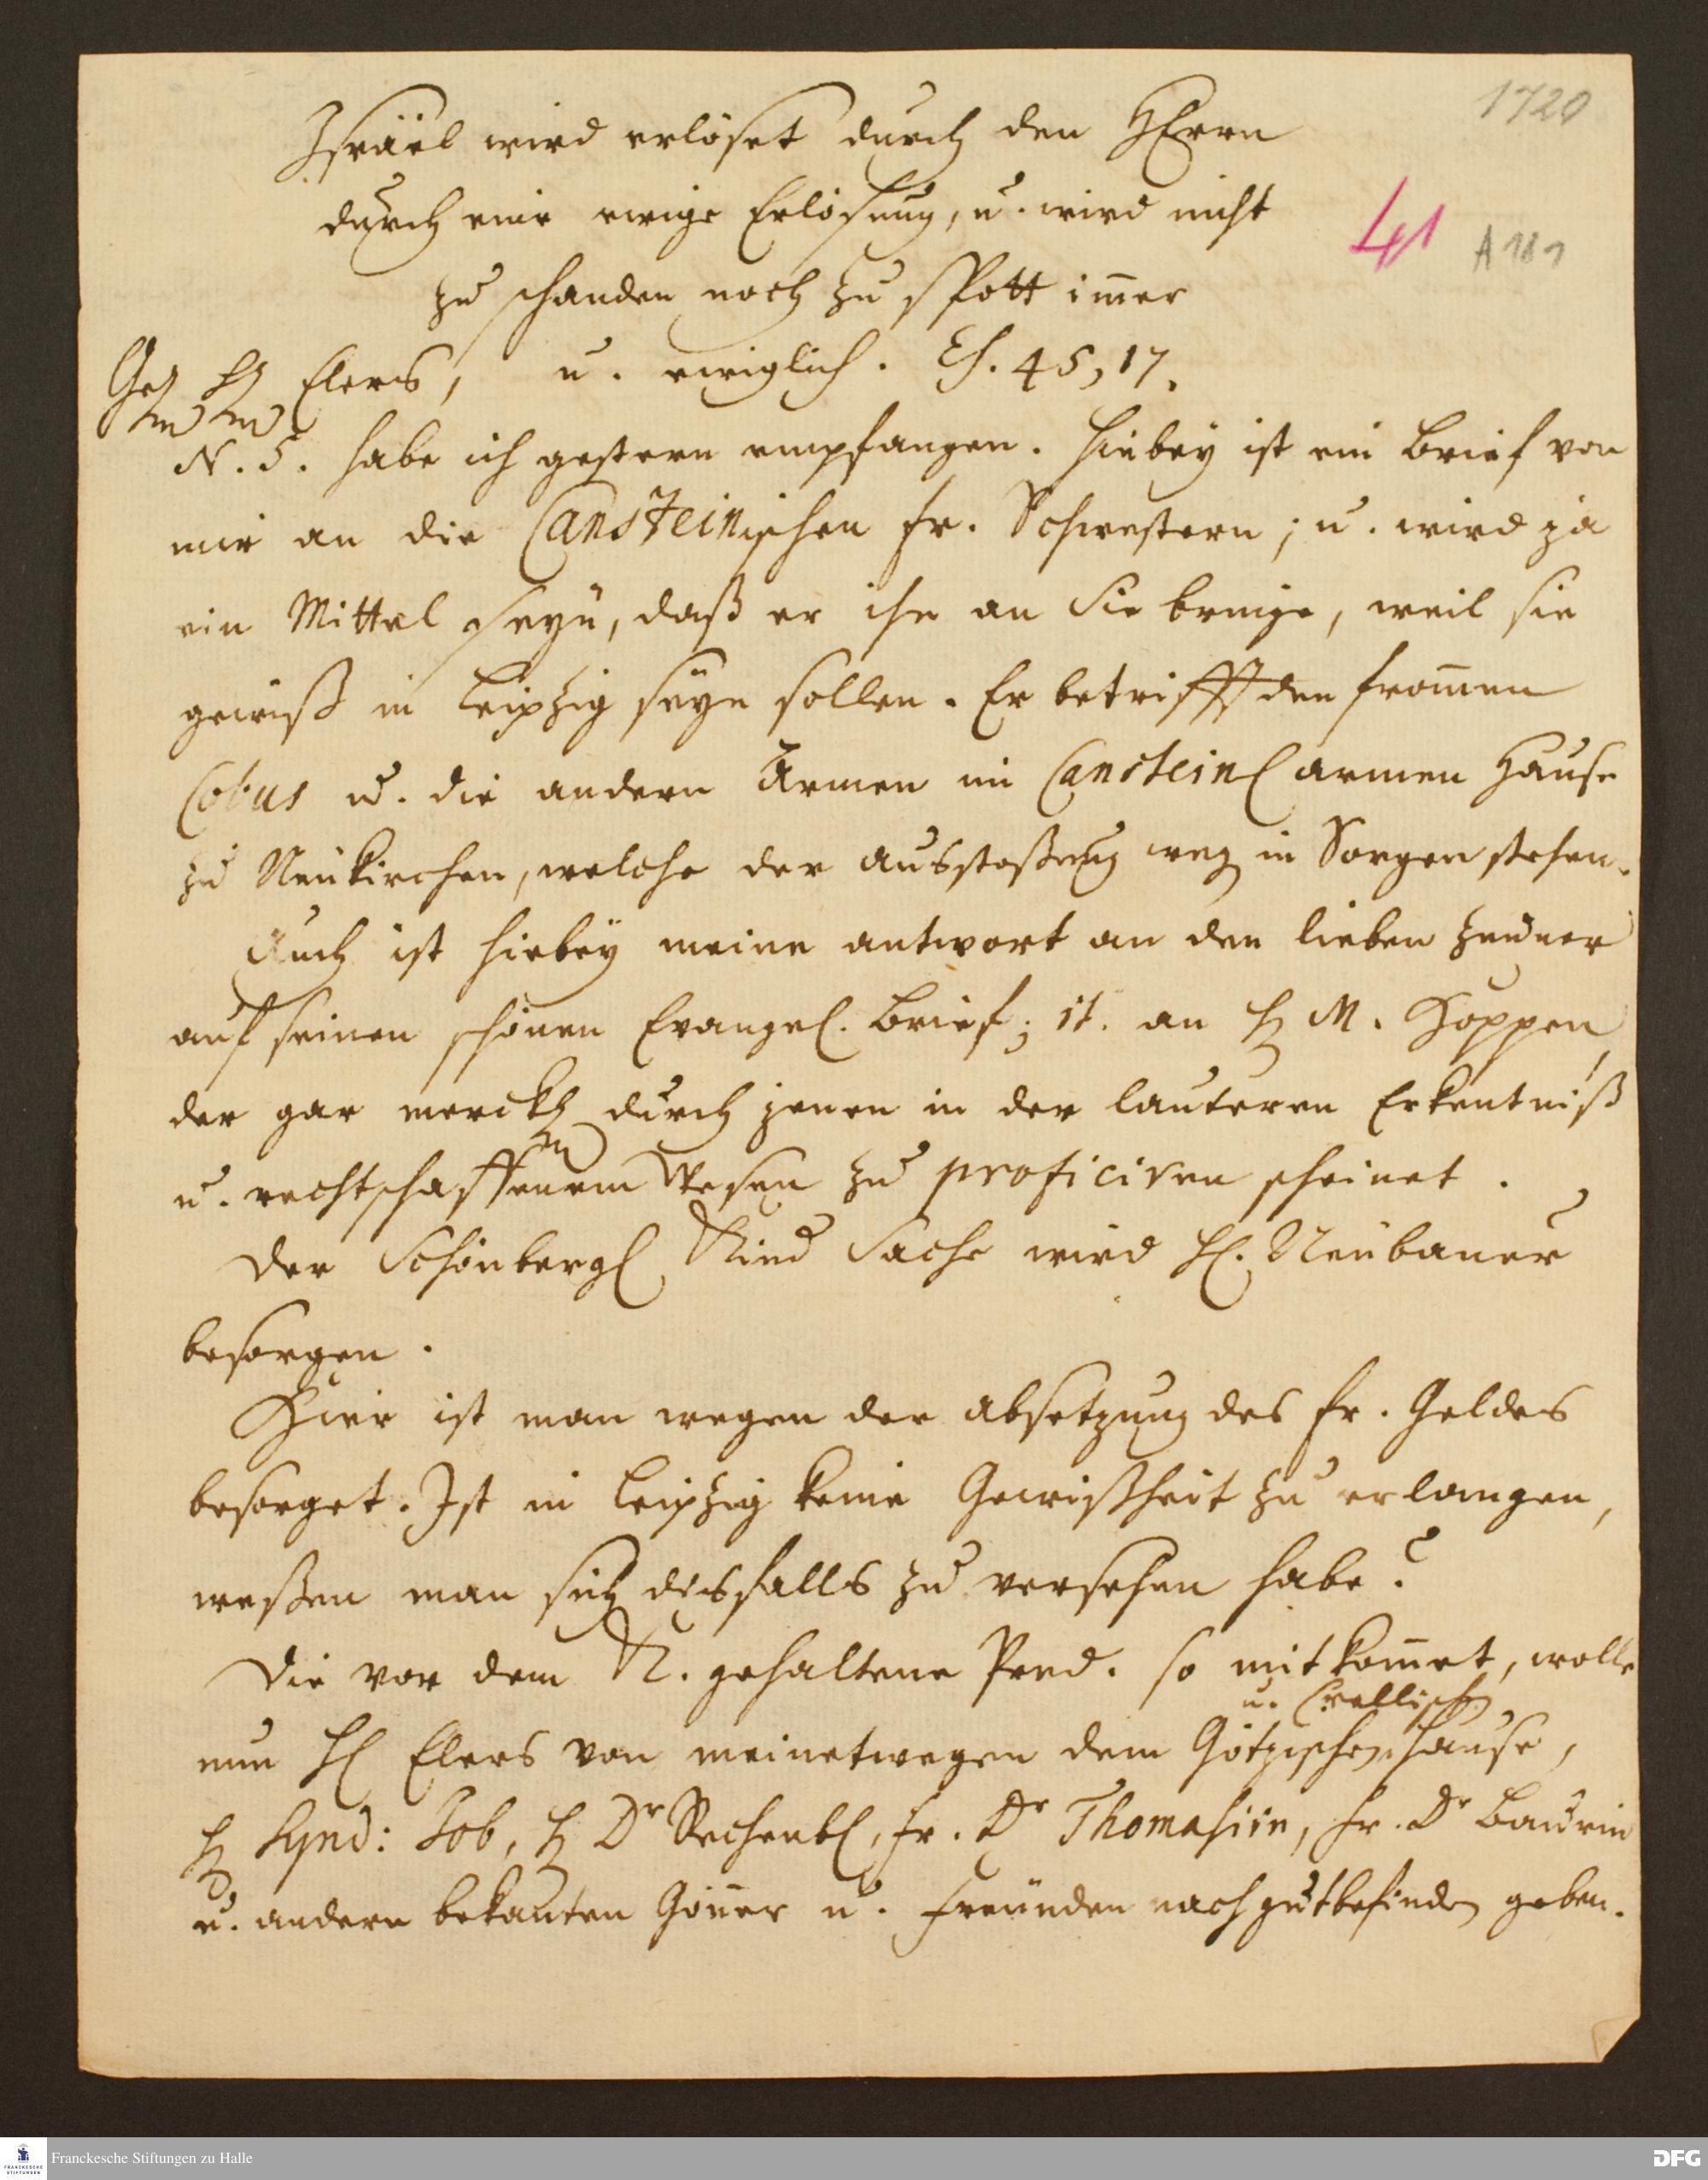 1720
Israël wird erlöset durch den HErrn
durch eine ewige Erlösung, u. wird nicht
41 A 181
zu schanden noch zu spott im̄er
u. ewiglich. Es. 45, 17.
Elers,
N. 5. habe ich gestern empfangen. Hiebey ist ein Brief von
mir an die Cansteinischen Fr. Schwestern; u. wird ja
ein Mittel seyn, daß er ihn an Sie bringe, weil sie
gewiß in Leipzig seyn sollen. Er betrifft den from̄en
Cobus u. die andern Armen im Canstein. armen Hause
zu Neukirchen, welche der ausstoßung weg. in Sorgen stehen.
Auch ist hiebey meine antwort an den lieben
auf seinen schönen Evangel. Brief; it. an H. M. Hoppen
der gar merckl. durch jenen in der lauteren Erkentniß
u. rechtschaffenem Wesen zu proficiren scheinet.
Der Schönberg. Kind Sache wird H. Neubauer
besorgen.
Hier ist man wegen der absetzung des fr. Geldes
besorget. Ist in Leipzig keine Gewißheit zu erlangen,
weßen man sich desfalls zu versehen habe?
Die vor dem K. gehaltene Pred. so mitkom̄et, wolle
u. Crellisch.
nun H. Elers von meinetwegen dem Götzischen Hause,
H. Synd: Job, H. Dr Rechenb., Fr. Dr Thomasiin, Fr. Dr
u. andern bekanten Gön̄er u. Freunden nach gutbefinden geben.
Franckesche Stiftungen zu Halle
DFG